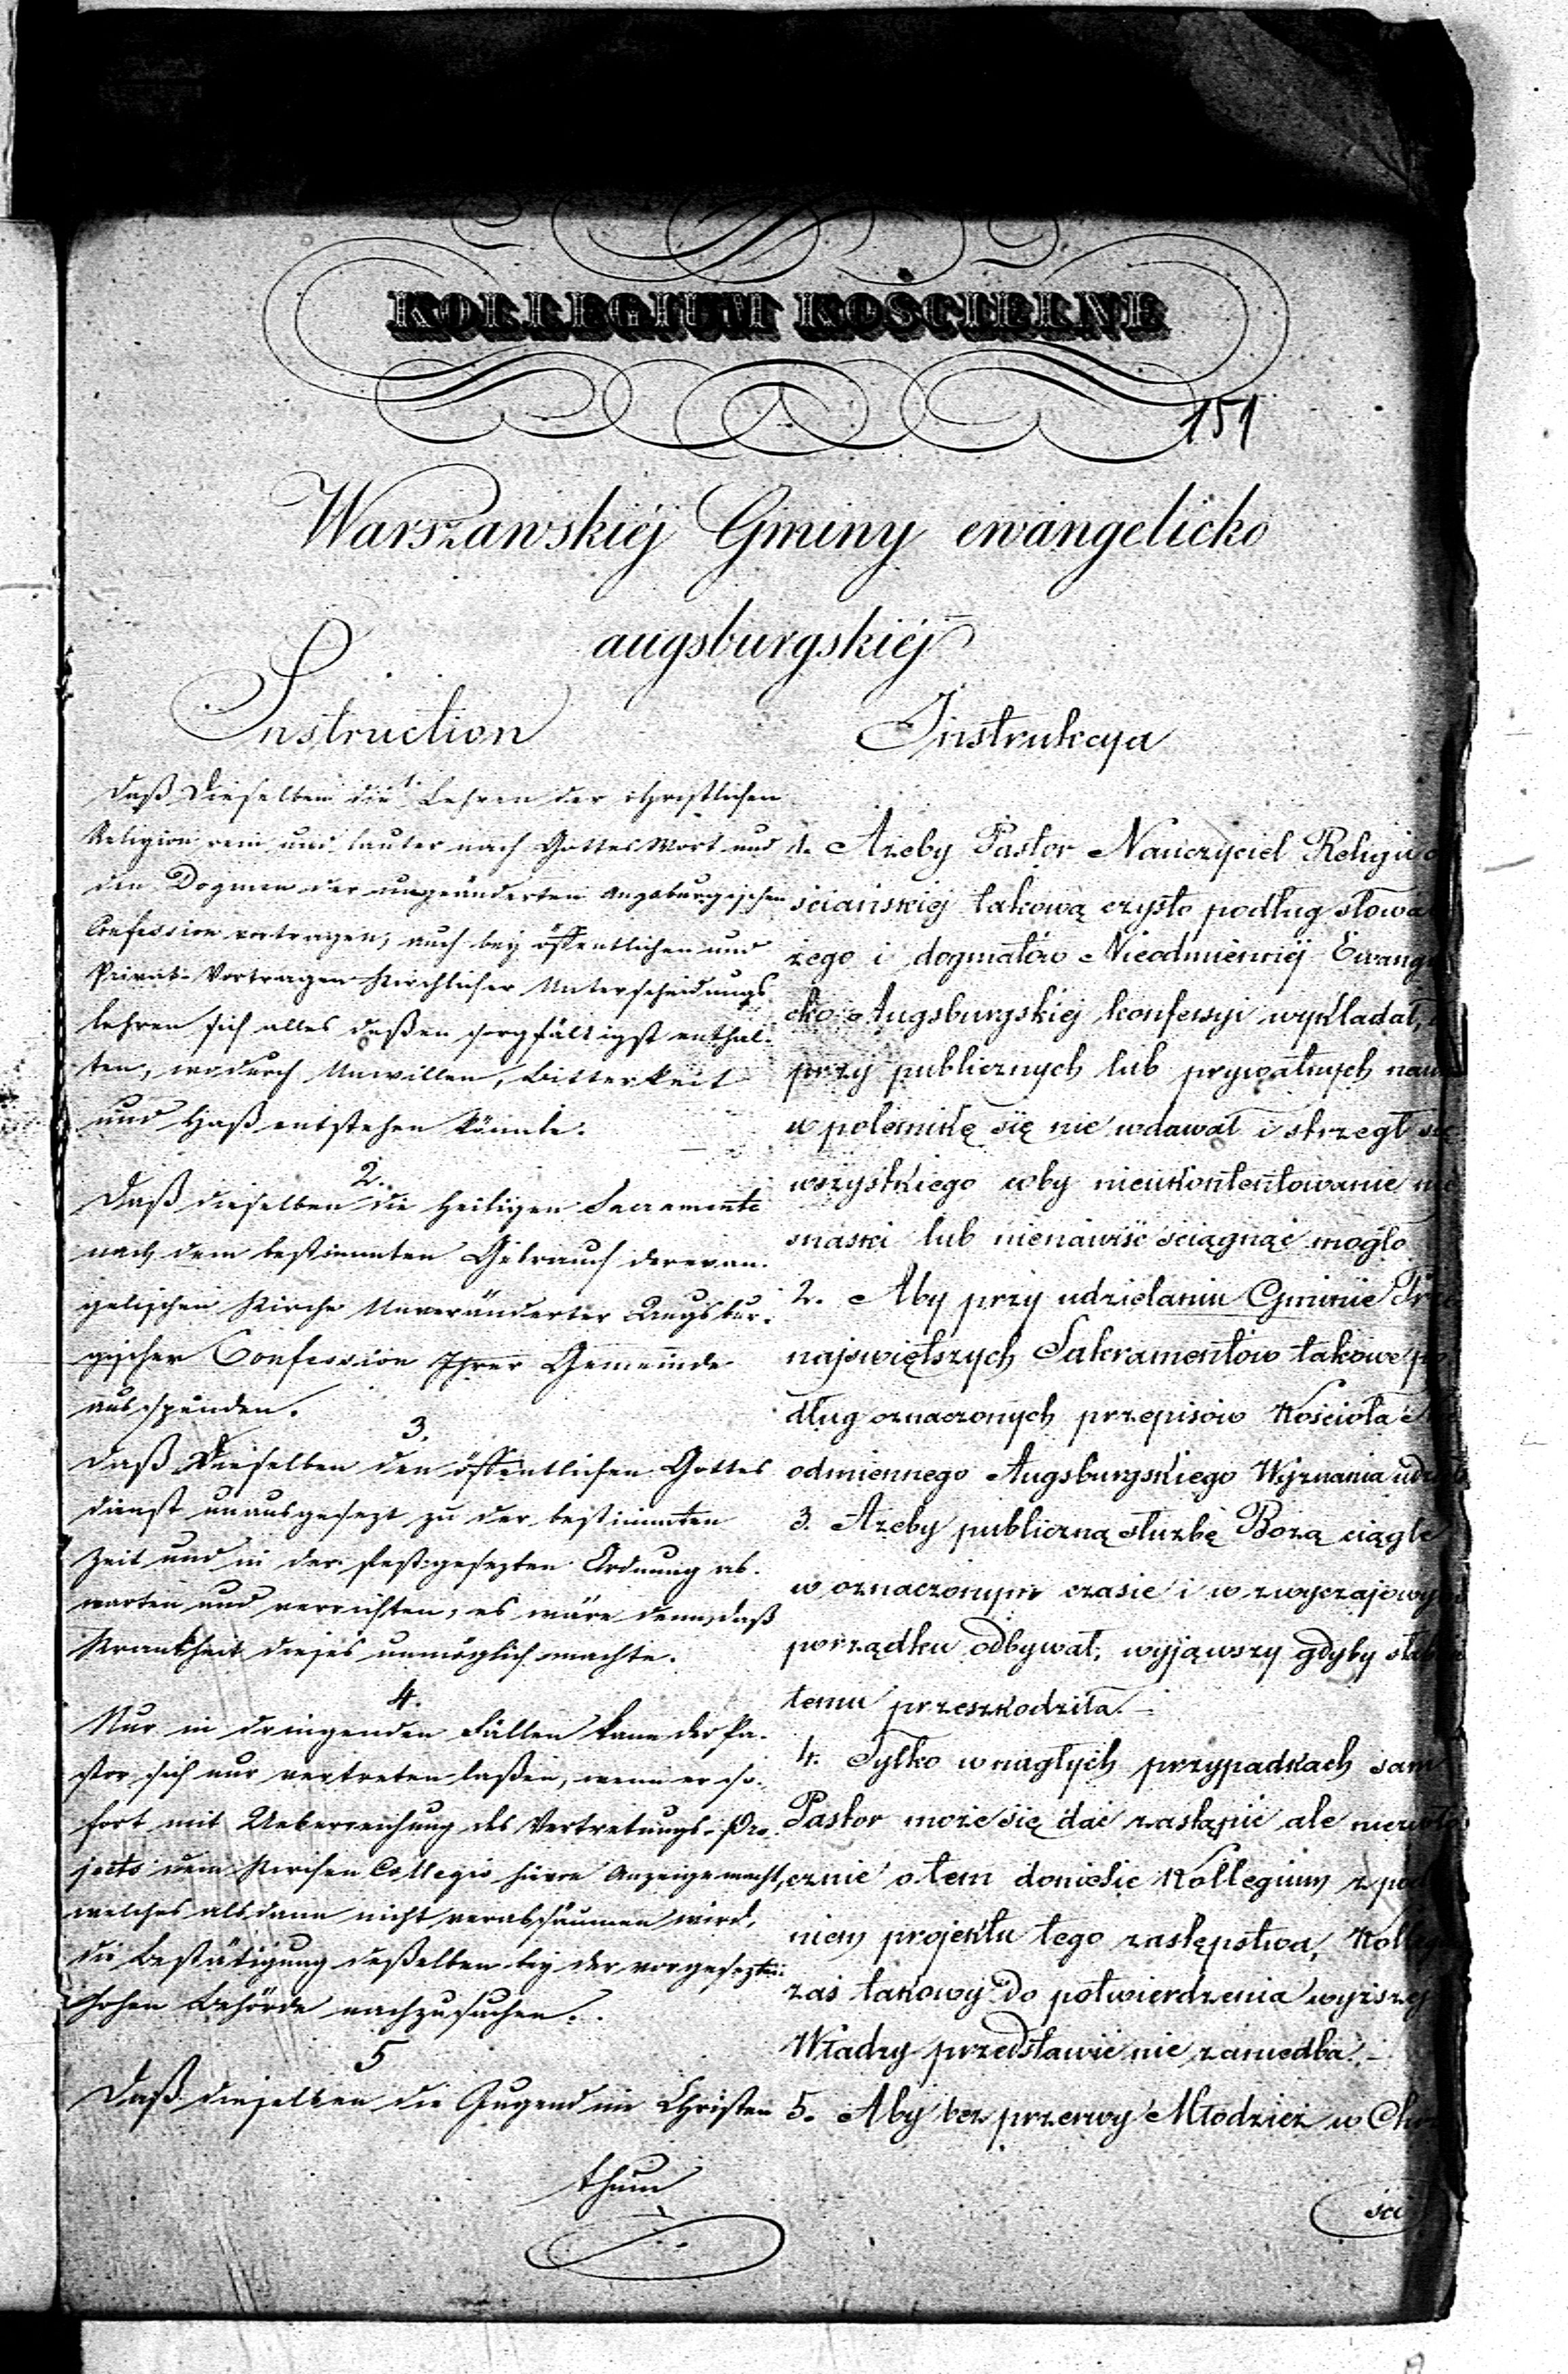 KOLLEGIUM KOŚCIELNE
151
Warszawskiéj Gminy ewangelicko
augsburgskiéj
Instruction
1.
Daß Dieselben die Lehren der christlichen
Religion rein und lauter nach Gottes Wort und
den Dogmen der ungeänderten Augsburgischen
Confession vortragen, auch bey öffentlichen und
Privat-Vortragen kirchlicher Unterscheidungs
lehren sich alles deßen sorgfältigst enthal-
ten, wodurch Unwillen, Bitterkeit
und Haß entstehen könnte.
2.
Daß dieselben die heiligen Sacramente
nach dem bestimmten Gebrauch der evan-
gelischen Kirche Unveränderter Augsbur-
gischer Confession Ihrer Gemeinde
ausspenden.
3.
Daß Dieselben den öffentlichen Gottes
dienst unausgesezt zu der bestimmten
Zeit und in der festgesezten Ordnung ab-
warten und verrichten, es wäre denn, daß
Krankheit dieses unmöglich machte.
4.
Nur in dringenden Fällen kann der Pa-
stor sich nur vertreten laßen, wenn er so-
fort mit Ueberreichung des Vertretungs-Pro-
jects dem Kirchen Collegio hievon Anzeige macht,
welches alsdann nicht verabsäumen wird,
die Bestätigung deßelben bey der vorgesezten
hohen Behörde nachzusuchen.
5
Daß dieselben die Jugend im Christen
thum
Instrukcya
1. Ażeby Pastor Nauczyciel Religii
ściańskiéj takową czysto podług słowa
żego i dogmatów Nieodmiennéj Ewang
cko Augsburgskiéj konfessyi wykładał,
przy publicznych lub prywatnych nau
w polemikę się nie wdawał i strzegł się
wszystkiego coby nieukontentowanie
snaski lub nienawiść ściągnąć mogło
2. Aby przy udzielaniu Gminie
najświętszych Sakramentów takowe po
dług oznaczonych przepisów Kościoła
odmiennego Augsburgskiego Wyznania
3. Ażeby publiczną służbę Bożą ciągle
w oznaczonym czasie i w zwyczajowym
porządku odbywał, wyjąwszy gdyby
temu przeszkodziła.
4. Tylko w nagłych przypadkach sam
Pastor może się dać zastąpić ale
cznie o tem doniesie Kollegium z
niem projektu tego zastępstwa,
zaś takowy do potwierdzenia wyższej
Władzy przedstawić nie zaniedba.
5. Aby bez przerwy Młodzież w